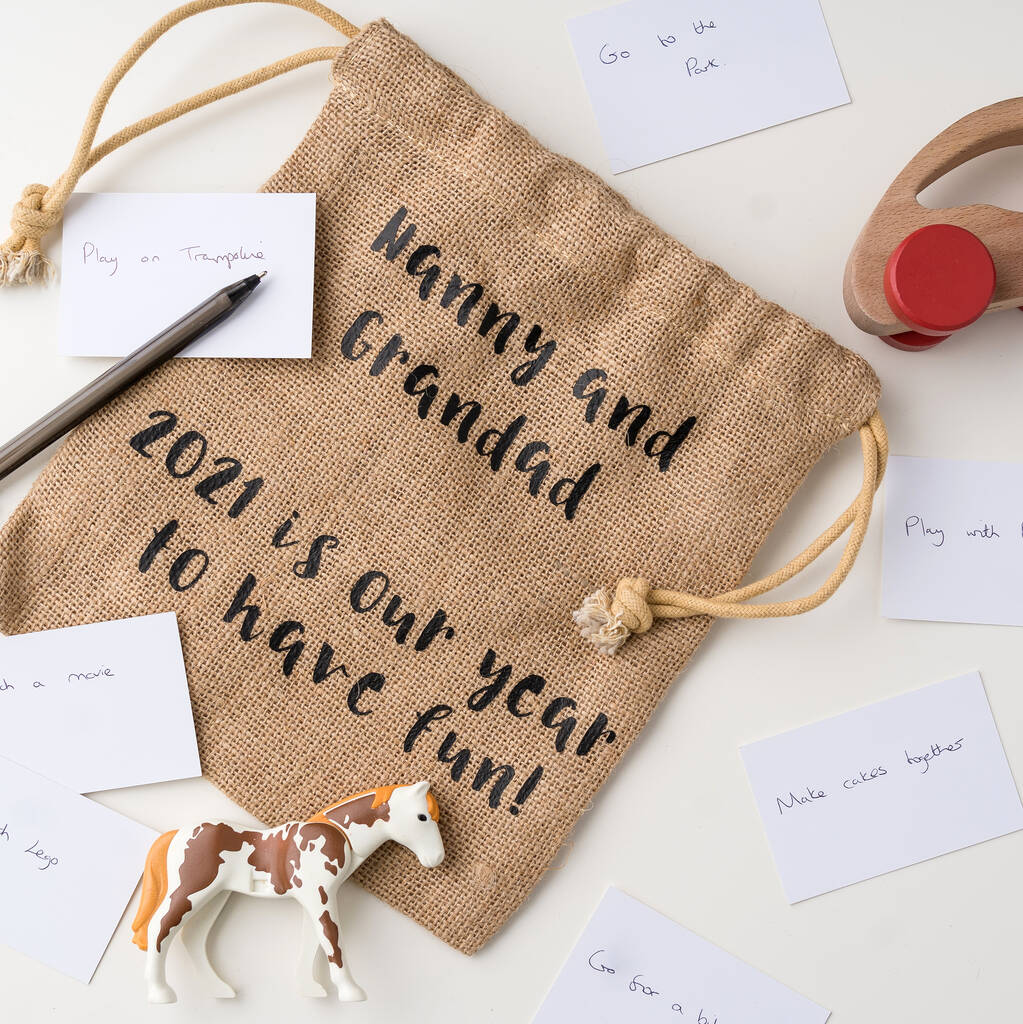 Go to the
Park.
Play on Trampoline
Nanny and
Grandad
2021 is our year
to have fun!
Play with
a movie
Lego
Make cakes together
Go for a